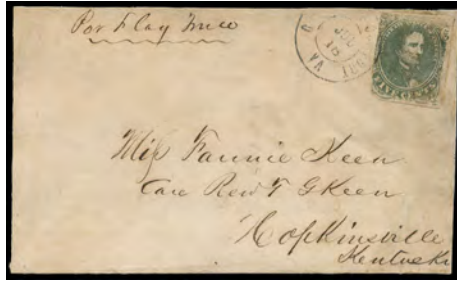 Por Flag Truce
VA
FIVE CENTS
Miss Fannie Keen
Care Revd T G Keen
Hopkinsville
Kentucky